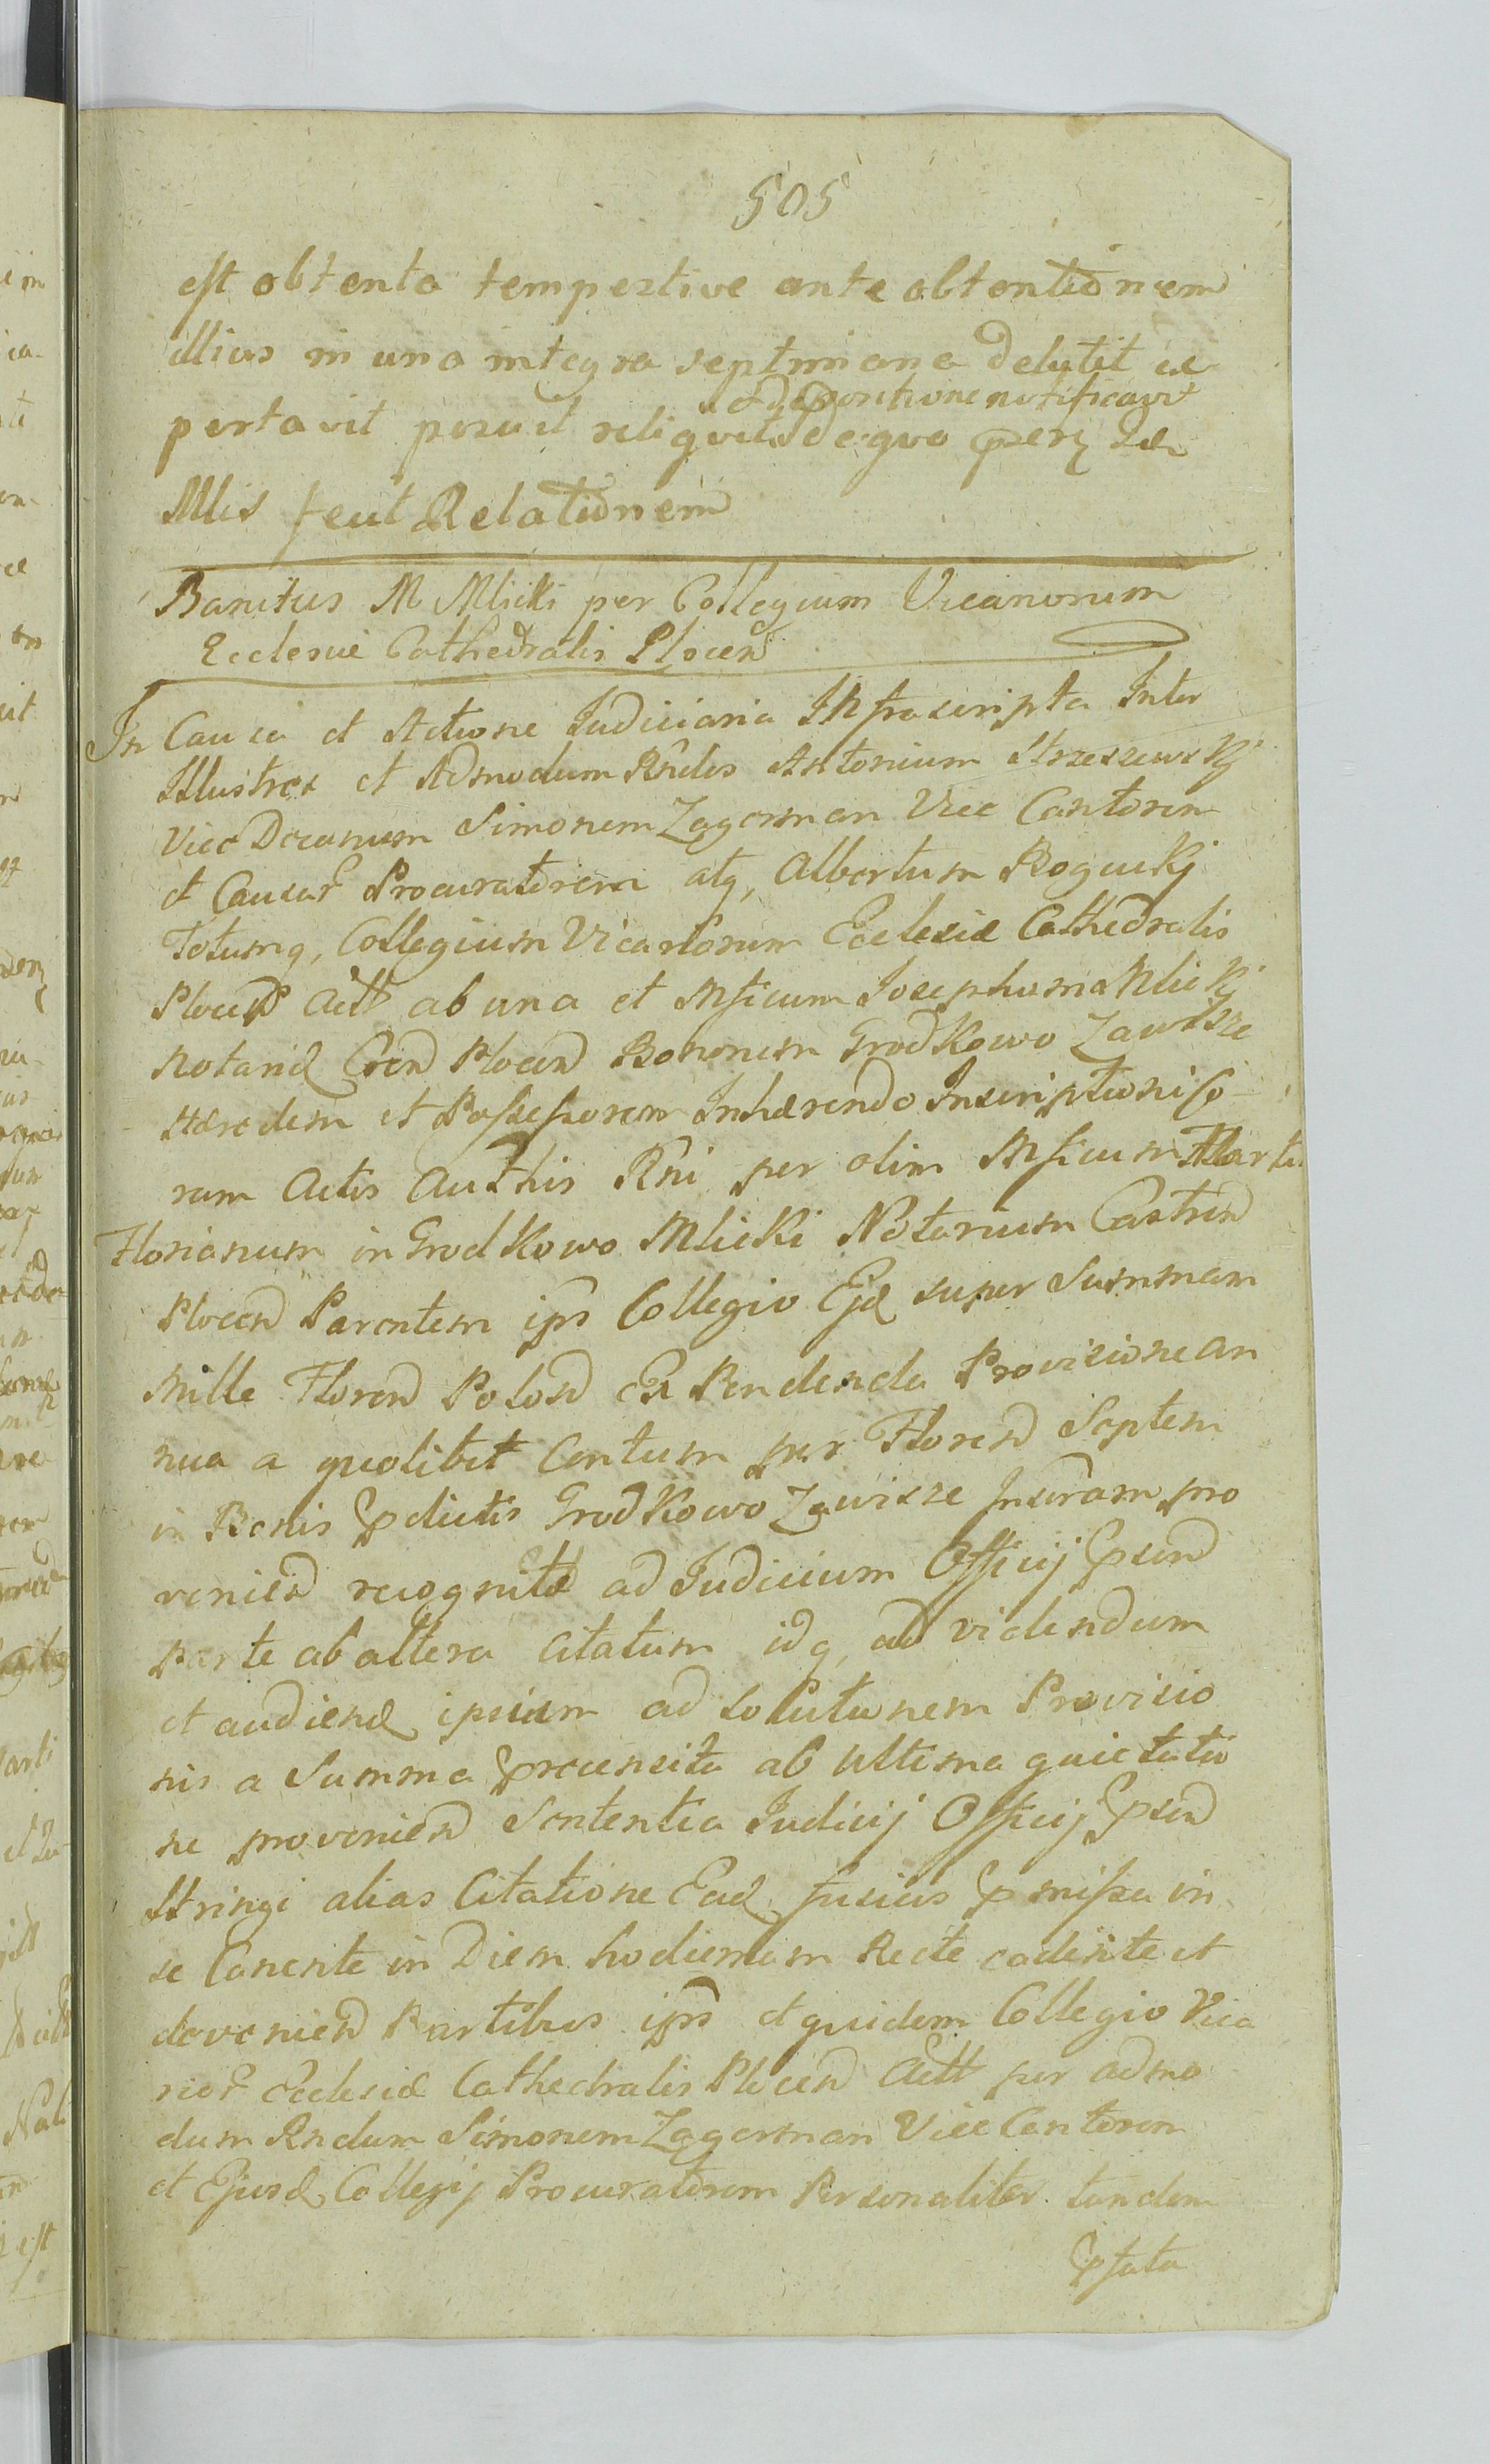 505
est obtenta tempestive ante obtentionem
illius in una integra septimana detulit ac
& de positione notificavit
portavit posuit reliquit de quo præsen suæ
Mlis fecit Relationem
Banitus M Mlicki per Collegium Vicariorum
Ecclesiæ Cathedralis Plocen
In Causa et Actione Judiciaria Infrascripta Inter
Illustres et Admodum Rndos Antonium Strzeszewskj
Vice Decanum Simonem Zagerman Vice Cantorem
et Causar Procuratorem atq, Albertum Boguckj
Totumq, Collegium Vicariorum Ecclesiæ Cathedralis
Plocen Actt ab una et Mficum Josephum Mlickj
Notarid Cren Plocen Bonorum Grodkowo Zawisze
Hæredem et Possessorem Inhærendo Inscriptioni co
ram Actis Authis Rni per olim Mficum Marti
Florianum in Grodkowo Mlicki Notarium Castren
Plocen Parentem ips Collegio Ejd super Summam
Mille Floren Polon Ex Pendenda Provisione an
nua a quolibet Centum per Floren Septem
in Bonis pdictis Grodkowo Zawisze Inscram pro
venien recognitæ ad Judicium Officij psen
parte ab altera Citatum idq, ad videndum
et audiend ipsum ad solutionem Provisio
nis a Summa precensita ab Ultima quietatio
ne provenien Sententia Judicij Officij psen
stringi alias Citatione Ead fusius pmissa in
se Canente in Diem hodiernam Recte cadente et
devenien Partibus ips et quidem Collegio Vica
rior Ecclesiæ Cathedralis Plocen Actt per admo
dum Rndum Simonem Zagerman Vice Cantorem
et Ejusd Collegij Procuratorem Personaliter tandem
pfata